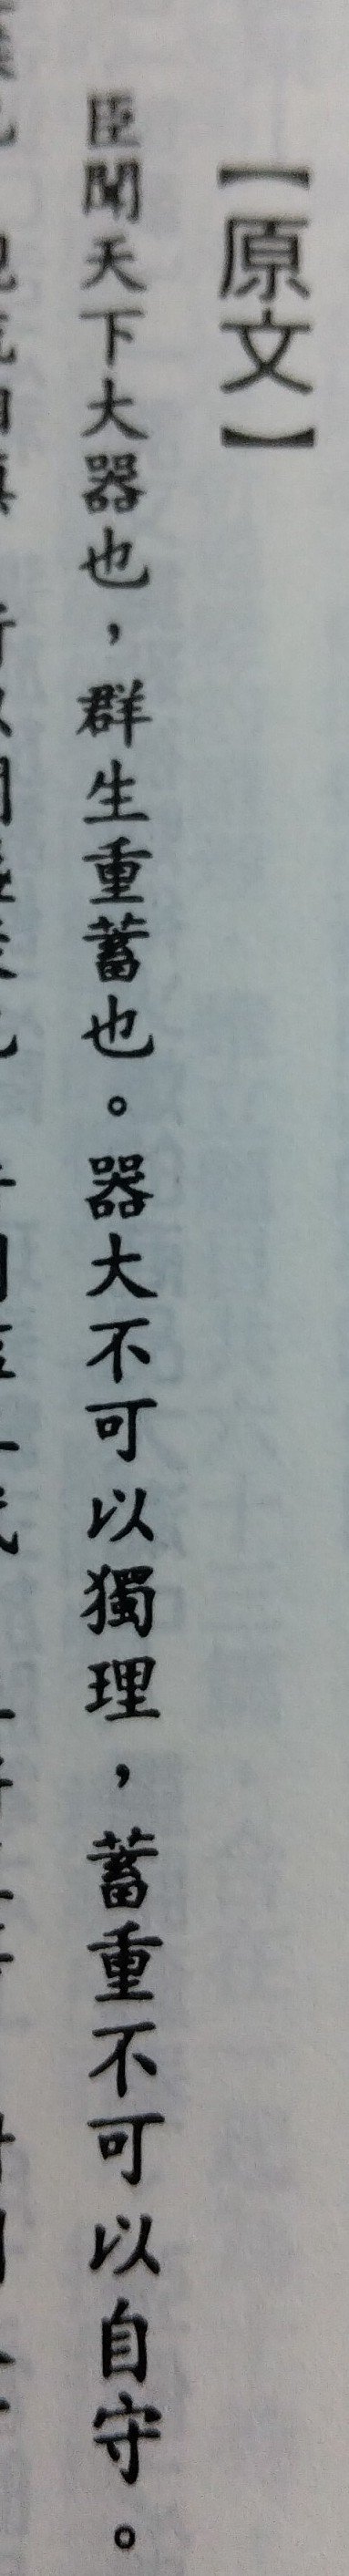 【原文】
臣聞天下大器也，群生重蓄也。器大不可以獨理，蓄重不可以自守。